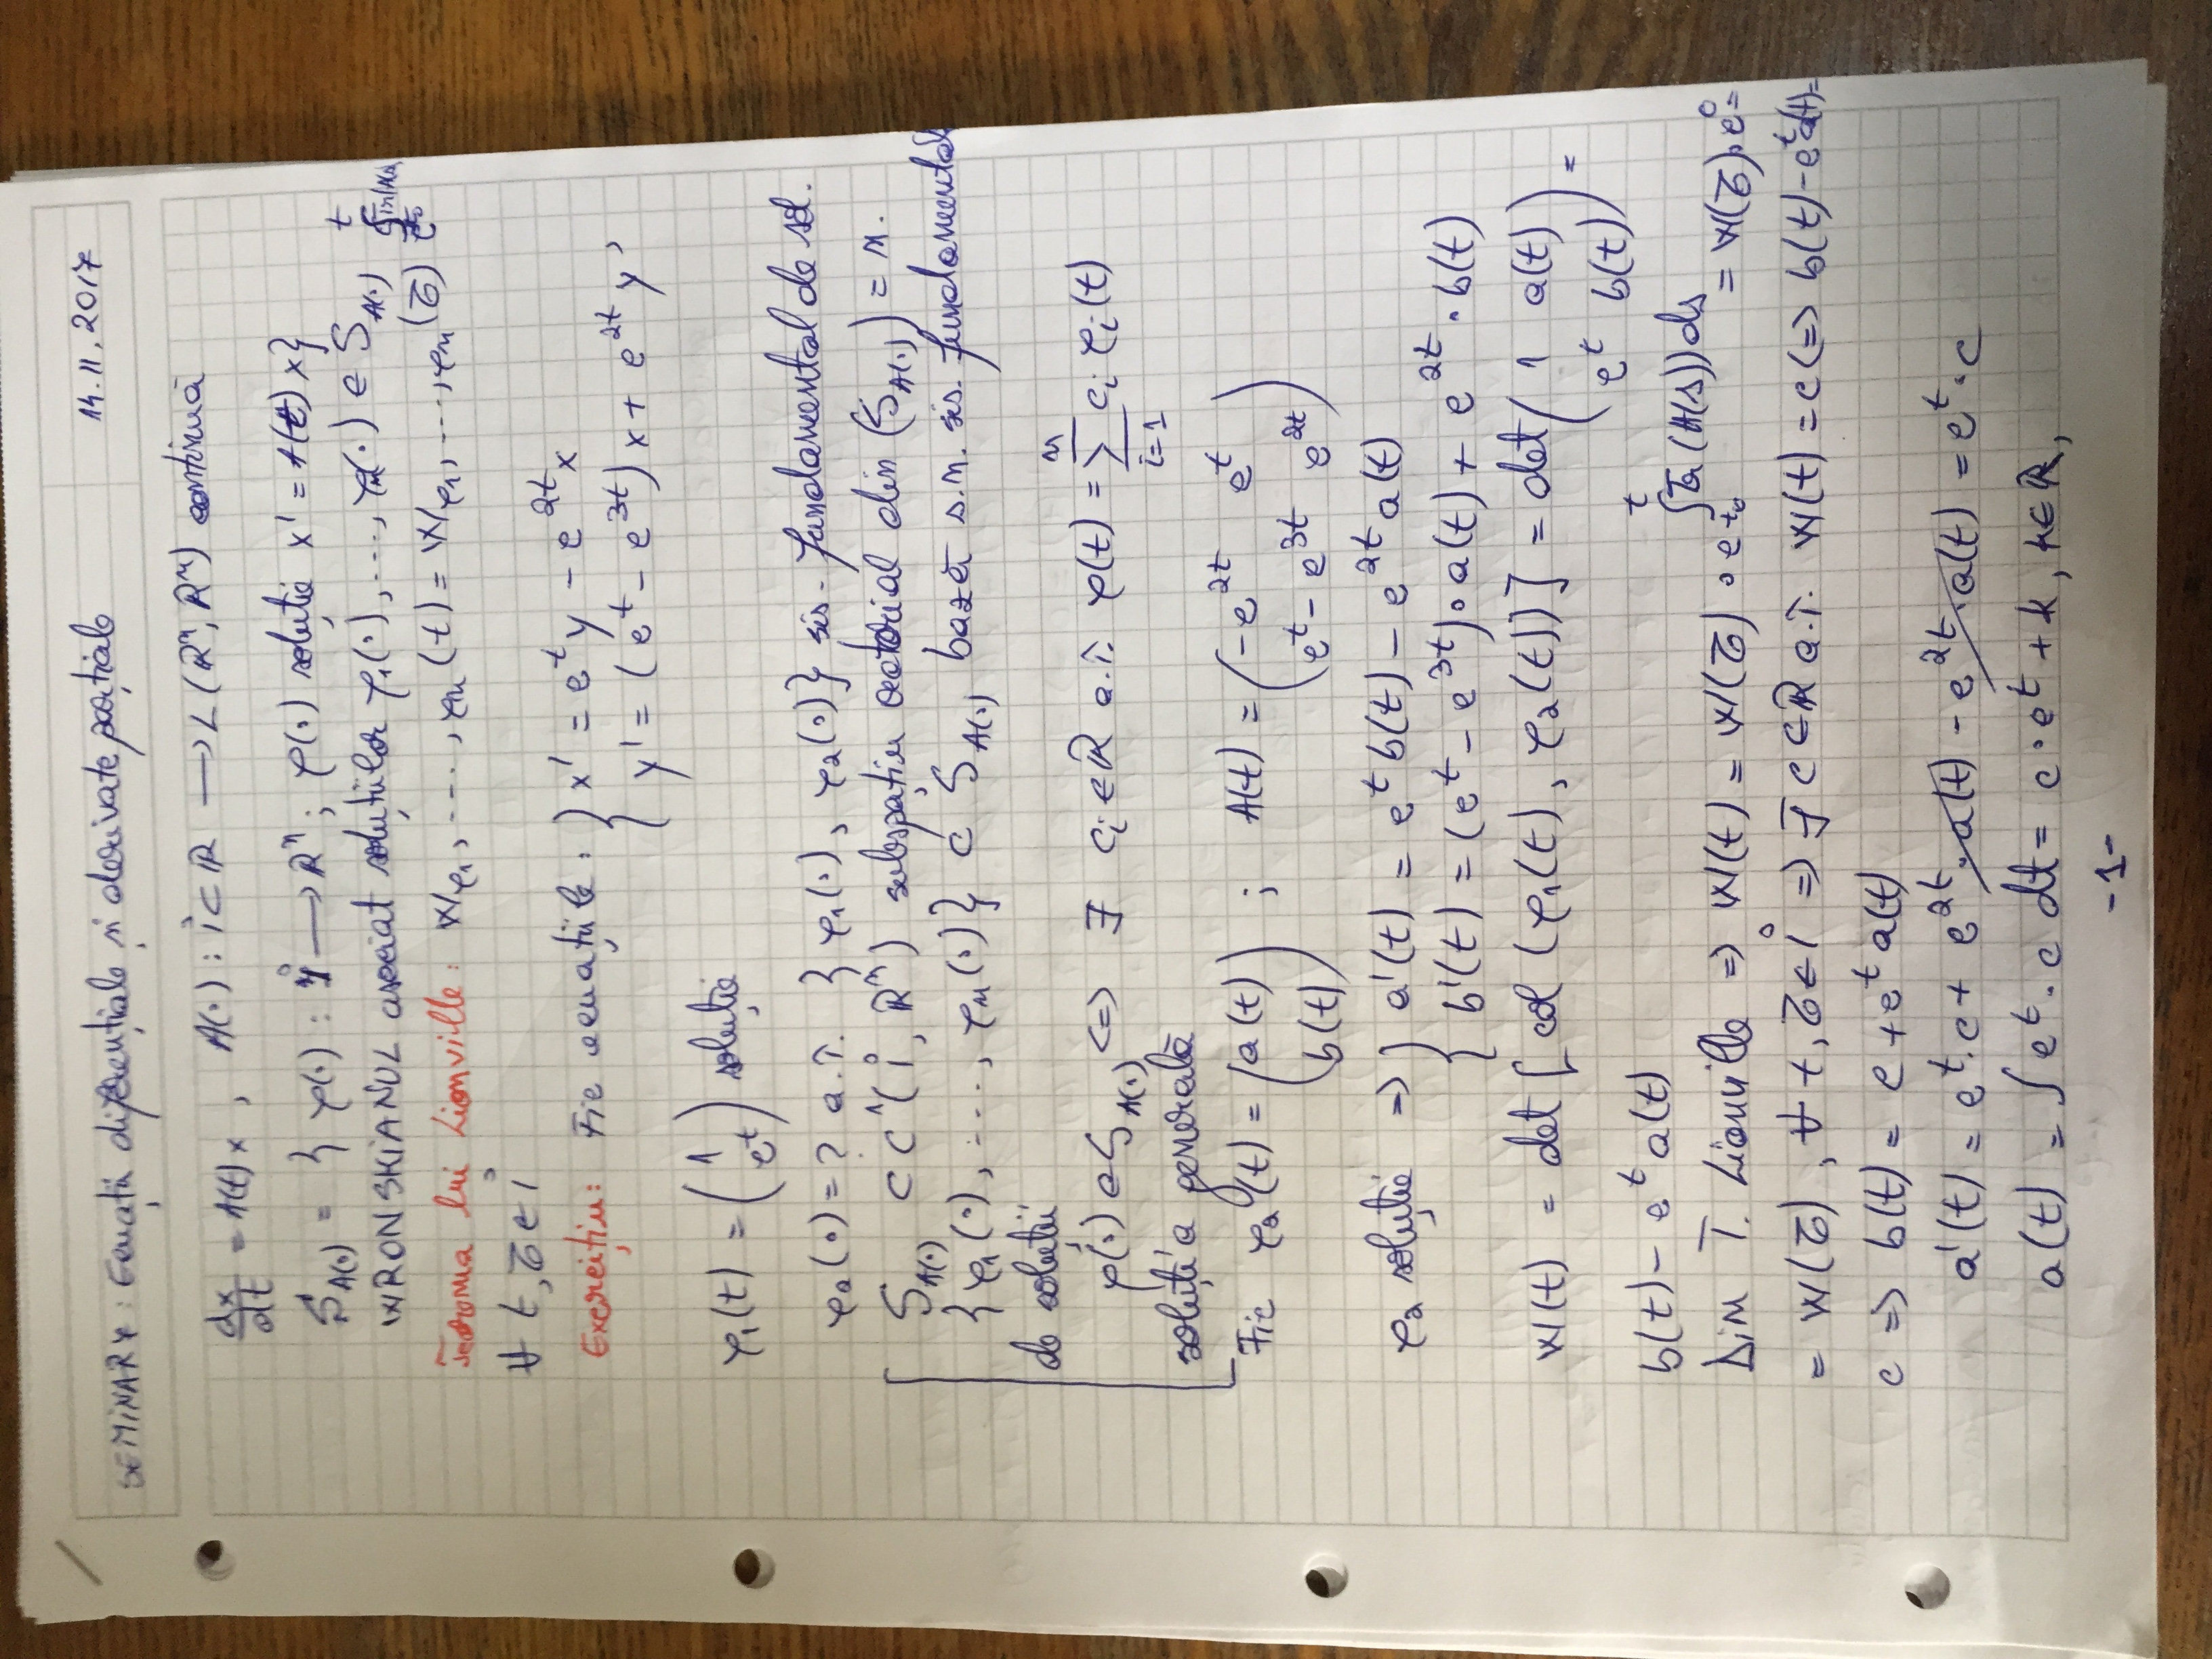 SEMINAR 7: Ecuații diferențiale și derivate parțiale 14.11.2017
dx/dt = A(t)x , A(·) : I ⊂ ℝ → L(ℝⁿ, ℝⁿ) continuă
S_A(·) = { φ(·) : I → ℝⁿ ; φ(·) soluție x' = A(t)x}
WRONSKIANUL asociat soluțiilor φ₁(·), ..., φₙ(·) ∈ S_A(·)
Teorema lui Liouville: W_φ₁, ..., φₙ (t) = W_φ₁, ..., φₙ (τ)
∀ t, τ ∈ I
Exercițiu: Fie ecuațiile : { x' = e^t y - e^{2t} x
{ y' = (e^t - e^{3t}) x + e^{2t} y ,
φ₁(t) = (1 e^t) soluție
φ₂(·) = ? a.î. {φ₁(·), φ₂(·)} sis. fundamental de sol.
S_A(·) ⊂ C¹(I, ℝⁿ) subspațiu vectorial dim (S_A(·)) = n.
{φ₁(·), ..., φₙ(·)} ⊂ S_A(·) bază s.n. sis. fundamental
de soluții
φ(·) ∈ S_A(·) <=> ∃ cᵢ ∈ ℝ a.î. φ(t) = Σ_{i=1}^{n} cᵢ φᵢ(t)
soluția generală
Fie φ₂(t) = (a(t) b(t)) ; A(t) = (-e^{2t} e^t ; e^t - e^{3t} e^{2t})
φ₂ soluție => { a'(t) = e^t b(t) - e^{2t} a(t)
{ b'(t) = (e^t - e^{3t}) · a(t) + e^{2t} · b(t)
W(t) = det [col (φ₁(t), φ₂(t))] = det (1 a(t) ; e^t b(t)) =
b(t) - e^t a(t)
Din T. Liouville => W(t) = W(τ) · e^{∫_{t₀}^{t} Tr (A(s)) ds} = W(τ) · e⁰ =
= W(τ), ∀ t, τ ∈ I => ∃ c ∈ ℝ a.î. W(t) = c <=> b(t) - e^t a(t) =
c => b(t) = c + e^t a(t)
a'(t) = e^t · c + e^{2t} · a(t) - e^{2t} · a(t) = e^t · c
a(t) = ∫ e^t · c dt = c · e^t + k, k ∈ ℝ,
-1-